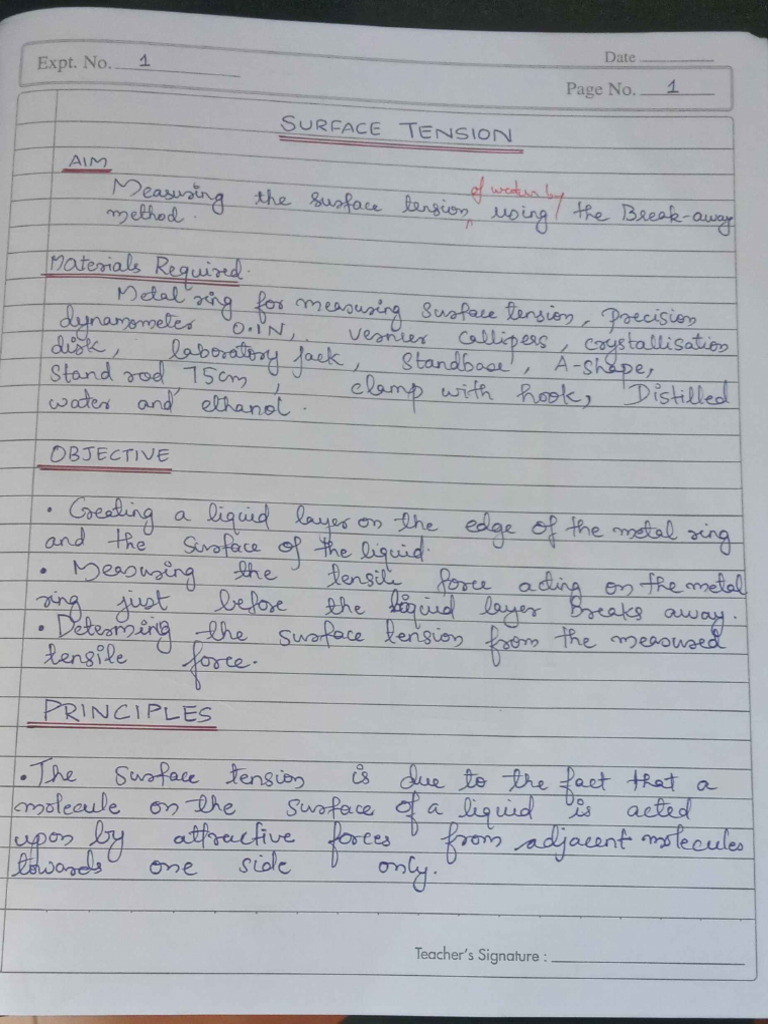 Expt. No. 1
Date
Page No. 1
SURFACE TENSION
AIM
Measuring the surface tension of water by using the Break-away
method.
Materials Required.
Metal ring for measuring Surface tension, precision
dynamometer 0.1N, vernier callipers, crystallisation
disk, laboratory jack, Standbase, A-shape,
Stand rod, 75cm, clamp with hook, Distilled
water and ethanol.
OBJECTIVE
• Creating a liquid layer on the edge of the metal ring
and the surface of the liquid.
• Measuring the tensile force acting on the metal
ring just before the liquid layer breaks away.
• Determing the surface tension from the measured
tensile force.
PRINCIPLES
• The surface tension is due to the fact that a
molecule on the surface of a liquid is acted
upon by attractive forces from adjacent molecules
towards one side only.
Teacher's Signature :